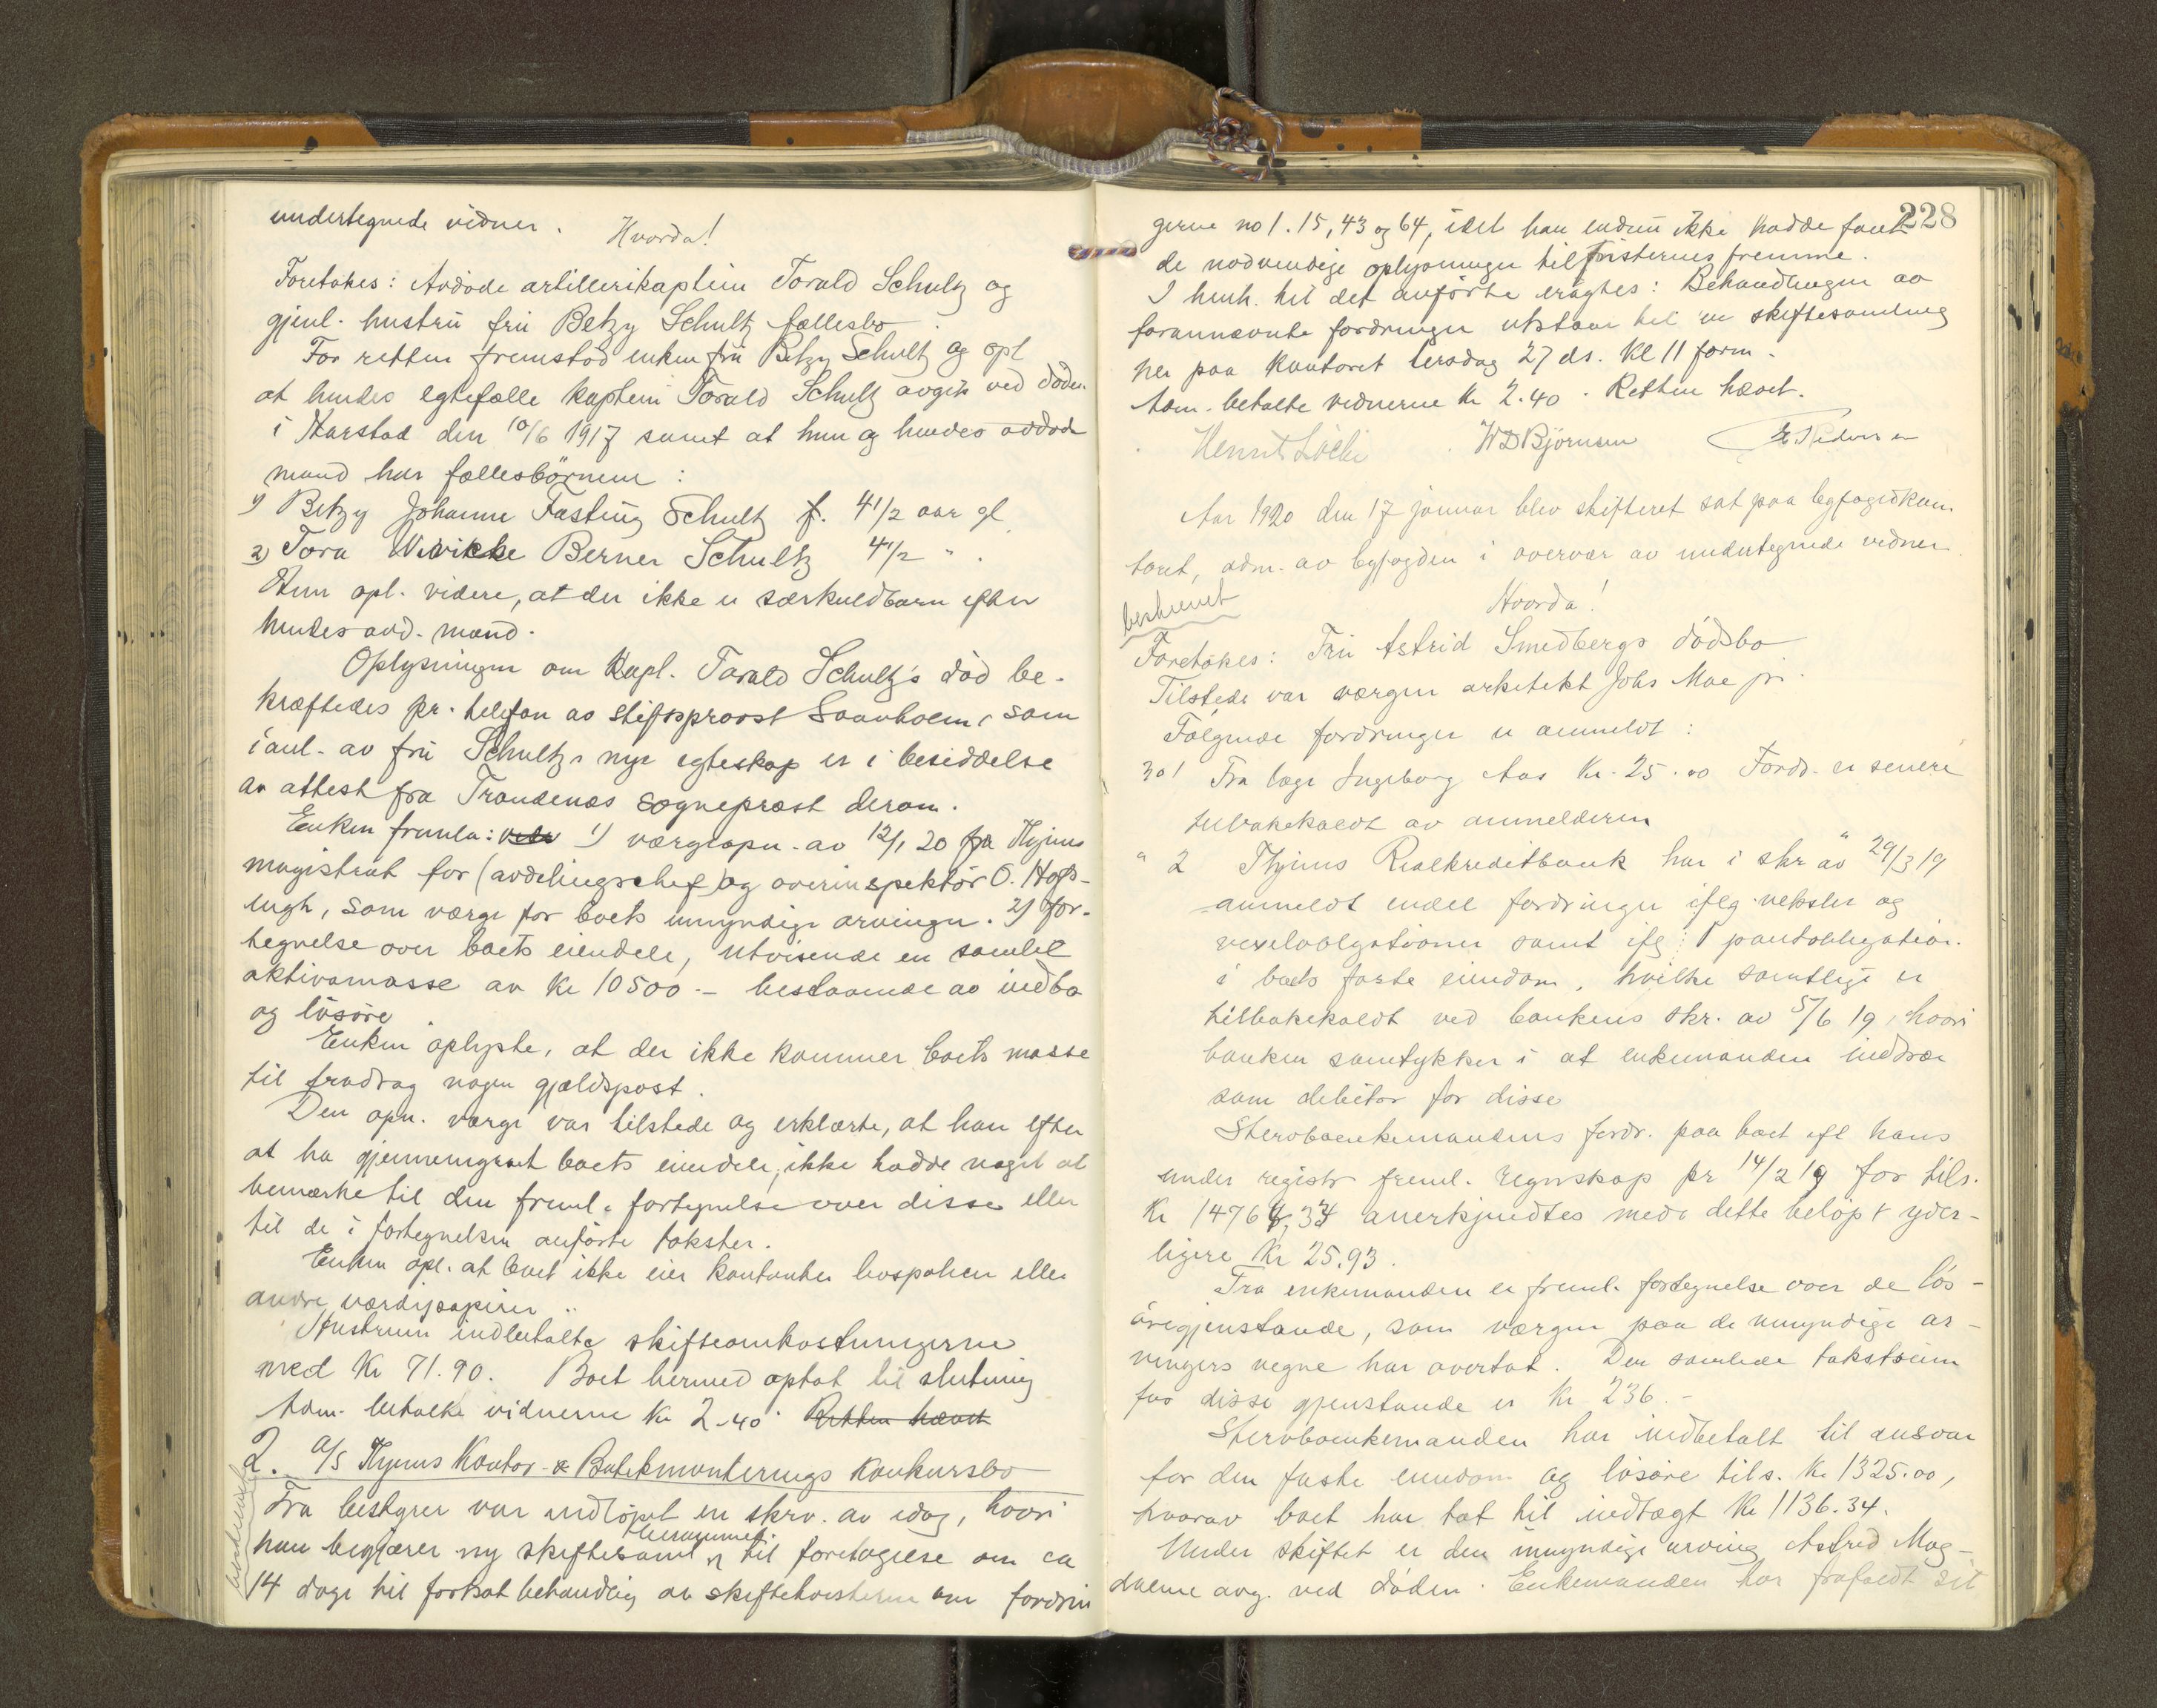 undertegnede vidner.
Hvorda!
Foretokes: Avdøde artillerikaptein Torald Schultz og
gjenl. hustru fru Betzy Schultz fællesbo.
For retten fremstod enken fru Betzy Schultz og opl
at hendes egtefælle kaptein Torald Schultz avgik ved døden
i Harstad den 10/6 1917 samt at hun og hendes avdøde
mand har fællesbörnene:
1) Betzy Johanne Fasting Schultz f. 4 1/2 aar gl
2) Tora Wivikke Berner Schultz 4 1/2 " .
Hun opl. videre, at der ikke er særkuldbarn efter
hendes avd. mand.
Oplysningen om Kapt. Torald Schultz's död be-
kræftedes pr. telefon av stiftsprovst , som
i anl. av fru Schultzs nye egteskap er i besiddelse
av attest fra Trondenæs sogneprest derom.
Enken fremla: 1) værgeopn. av 12/1 20 fra Thjems
magistrat for (avdelingschef) og overinspektör O.
, som værge for boets umyndige arvinger. 2) for-
tegnelse over boets eiendele, utvisende en samlet
aktivamasse av Kr 10500.- bestaaende av indbo
og lösöre.
Enken oplyste, at der ikke kommer boets masse
til fradrag nogen gjældspost.
Den opn. værge var tilstede og erklærte, at han efter
at ha gjennemgaat boets eiendele, ikke hadde noget at
bemærke til den freml. fortegnelse over disse eller
til de i fortegnelsen anförte takster.
Enken opl. at boet ikke eier kontanter bankpoken eller
andre værdipapirer.
Hustruen indbetalte skifteomkostningerne
med Kr 71.90. Boet hermed optat til slutning
Adm. betalte vidnerne Kr 2.40. Retten hævet
2. A/S Thjems Kontor- & Butikmonterings Konkursbo
beskrevet
Fra bestyrer var indlöpet en skrv. av idag, hvori
han begjærer ny skiftesaml. berammet til foretagelse om ca
14 dage til fortsat behandling av skiftetvisterne om fordrin
228
gerne no 1. 15, 43 og 64, idet han endnu ikke hadde faaet
de nødvendige oplysninger til tvisternes fremme.
I henh. til det anförte eragtes: Behandlingen av
forannævnte fordringer utstaar til en skiftesamling
her paa kontoret tirsdag 27 ds. Kl 11 form.
Adm. betalte vidnerne Kr 2.40. Retten hævet.
W D Björnsen E Pedersen
Aar 1920 den 17 januar blev skifteret sat paa byfogedkon-
toret, adm. av byfogden i overvær av undertegnede vidner.
beskrevet
Hvorda!
Foretokes: Fru Astrid Smedbergs dödsbo
Tilstede var værgen arkitekt Johs Moe jr.
Fölgende fordringer er anmeldt:
no 1 Fra læge Ingeborg Aas Kr. 25.00 Fordr. er senere
tilbakekaldt av anmelderen
" 2 Thjems Realkreditbank har i skr av 29/3 19
anmeldt endel fordringer iflg. veksler og
vexelobligationer samt iflg. 1 pantobligation.
i boets faste eiendom, hvilke samtlige er
tilbakekaldt ved bankens skr. av 5/6 19, hvori
banken samtykker i at enkemanden inddrar
som debitor for disse
Stervboenkemandens fordr. paa boet ifl hans
under registr freml. regnskap pr 14/2 19 for tils.
Kr 14764,34 anerkjendtes med dette belöp + yder-
ligere Kr 25.93.
Fra enkemanden er freml. fortegnelse over de lös-
öregjenstande, som værgen paa de umyndige ar-
vingers vegne har overtat. Den samlede takstsum
for disse gjenstande er Kr 236.-
Stervboenkemanden har indbetalt til ansvar
for den faste eiendom og lösöre tils. Kr 1325.00,
hvorav boet har tat til indtægt Kr 1136.34.
Under skiftet er den umyndige arving Astrid Mag-
dalene avg. ved döden. Enkemanden har frafaldt sit